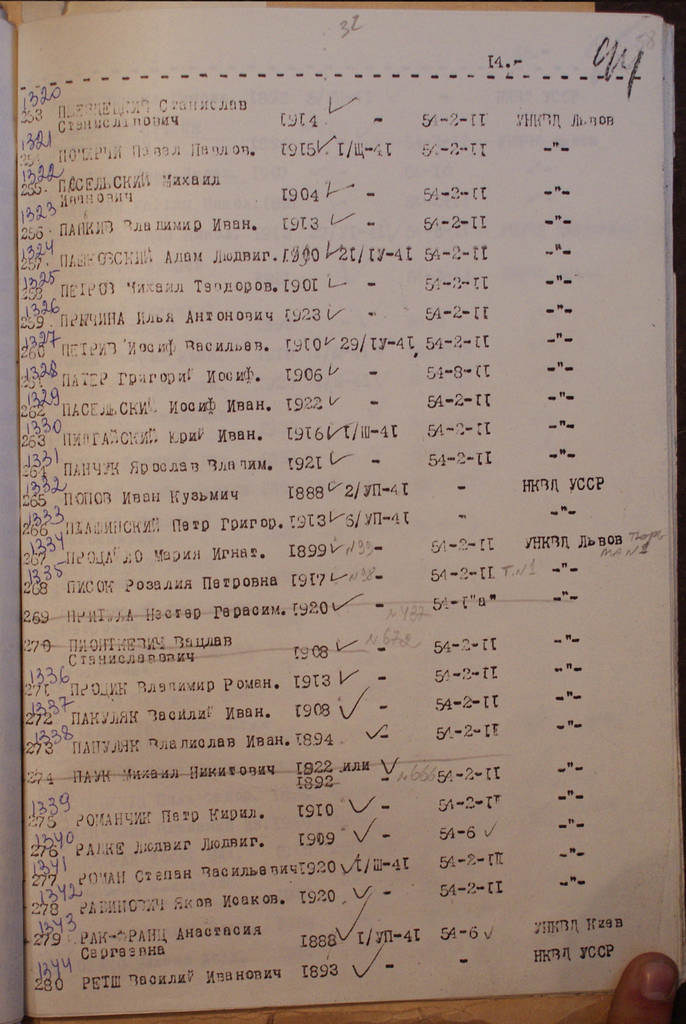 32
14.-
94
58
1320
253 Станислав
Станиславович 1914 - 54-2-II УНКВД Львов
1321
Павел Павлов. 1915 I/Ш-41 54-2-II -"-
1322
255. ПАСЕЛЬСКИЙ Михаил
Иванович 1904 - 54-2-II -"-
1323
256. ПАПКИВ Владимир Иван. 1913 - 54-2-II -"-
1324
257. ПАШКОВСКИЙ Адам Людвиг. 21/IУ-41 54-2-II -"-
1325
258. ПЕТРОВ Михаил Теодоров. 1901 - 54-2-II -"-
1326
259. ПРИЧИНА Илья Антонович 1923 - 54-2-II -"-
1327
260 ПЕТРИВ Иосиф Васильев. 1910 29/IУ-41, 54-2-II -"-
1328
261 ПАТЕР Григорий Иосиф. 1906 - 54-8-II -"-
1329
262 ПАСЕЛЬСКИЙ Иосиф Иван. 1922 - 54-2-II -"-
1330
263 Юрий Иван. 1916 I/Ш-41 54-2-II -"-
1331
264 ПАНЧУК Ярослав Владим. 1921 - 54-2-II -"-
1332
265 ПОПОВ Иван Кузьмич 1888 2/УП-41 - НКВД УССР
1333
266 Петр Григор. 1913 6/УП-41 - -"-
1334
267 ПРОДАЙЛО Мария Игнат. 1899 N 99 - 54-2-II УНКВД Львов Тюрь
МА N1
1335
268 ПИСОК Розалия Петровна 1917 N98 - 54-2-II Т.N1 -"-
269 ПРИТУЛА Нестер Герасим. 1920 - N437 54-I"а" -"-
270 ПИОНТКЕВИЧ Вацлав N 672
Станиславович 1908 - 54-2-II -"-
1336
271 ПРОЦИК Владимир Роман. 1913 - 54-2-II -"-
1337
272 ПАКУЛЯК Василий Иван. 1908 - 54-2-II -"-
1338
273 ПАПУЛЯК Владислав Иван. 1894 - 54-2-II -"-
274 ПАУК Михаил Никитович 1922 или - N666 54-2-II -"-
1892
1339
275 РОМАНЧИК Петр Кирил. 1910 - 54-2-II -"-
1340
276 РАДКЕ Людвиг Людвиг. 1909 - 54-6 -"-
1341
277 РОМАН Степан Васильевич 1920 I/Ш-41 54-2-II -"-
1342
278 РАБИНОВИЧ Яков Исаков. 1920 - 54-2-II -"-
1343
279 РАК-ФРАНЦ Анастасия
Сергеевна 1888 I/УП-41 54-6 УНКВД Киев
1344
280 РЕТШ Василий Иванович 1893 - - НКВД УССР